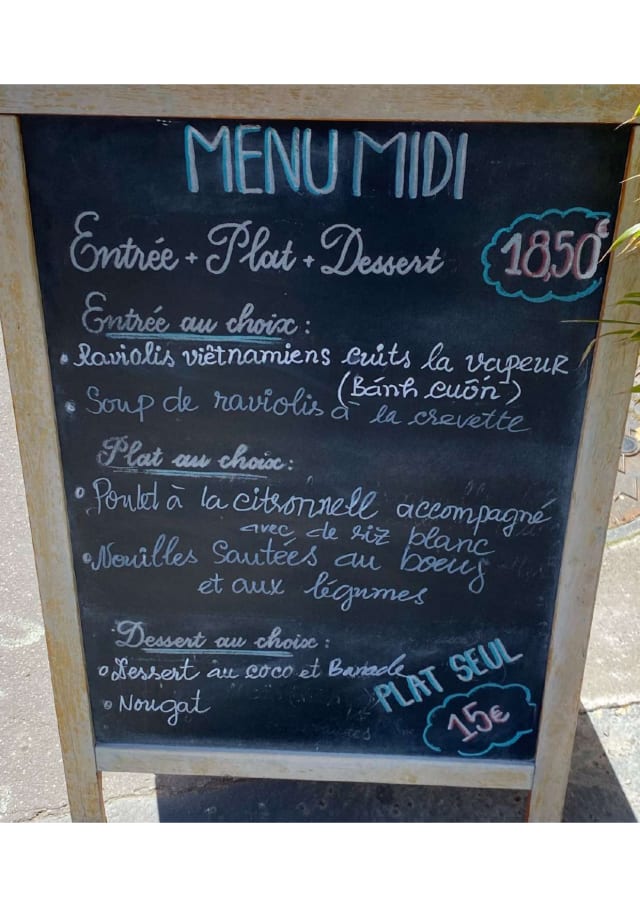 MENU MIDI
Entrée + Plat + Dessert 18,50€
Entrée au choix :
• Raviolis viêtnamiens cuits la vapeur
(Bánh cuôn)
• Soup de raviolis à la crevette
Plat au choix :
• Poulet à la citronnell accompagné
avec de riz blanc
• Nouilles Sautées au boeuf
et aux légumes
Dessert au choix :
• Dessert au coco et Banade
• Nougat
PLAT SEUL
15€